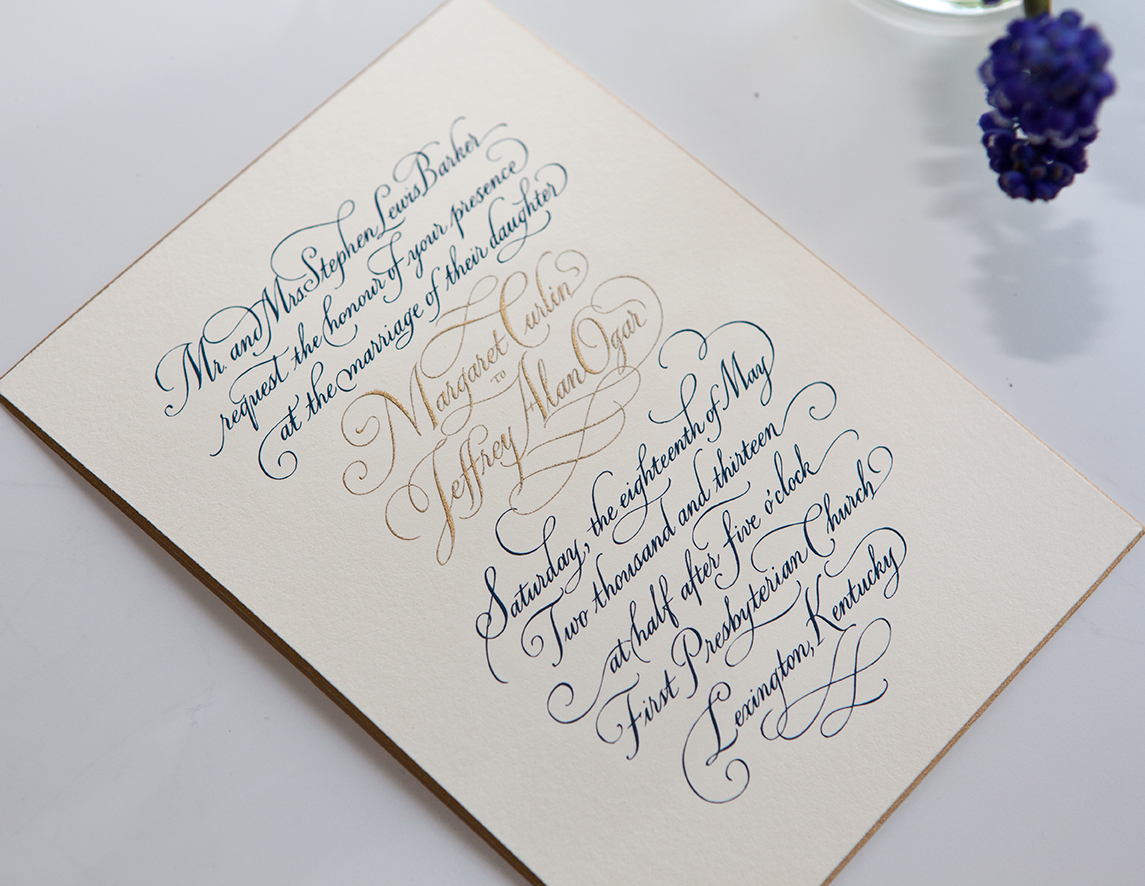 Mr. and Mrs. Stephen Lewis Barker
request the honour of your presence
at the marriage of their daughter
Margaret Curlin
TO
Jeffrey Alan Ogar
Saturday, the eighteenth of May
Two thousand and thirteen
at half after five o'clock
First Presbyterian Church
Lexington, Kentucky